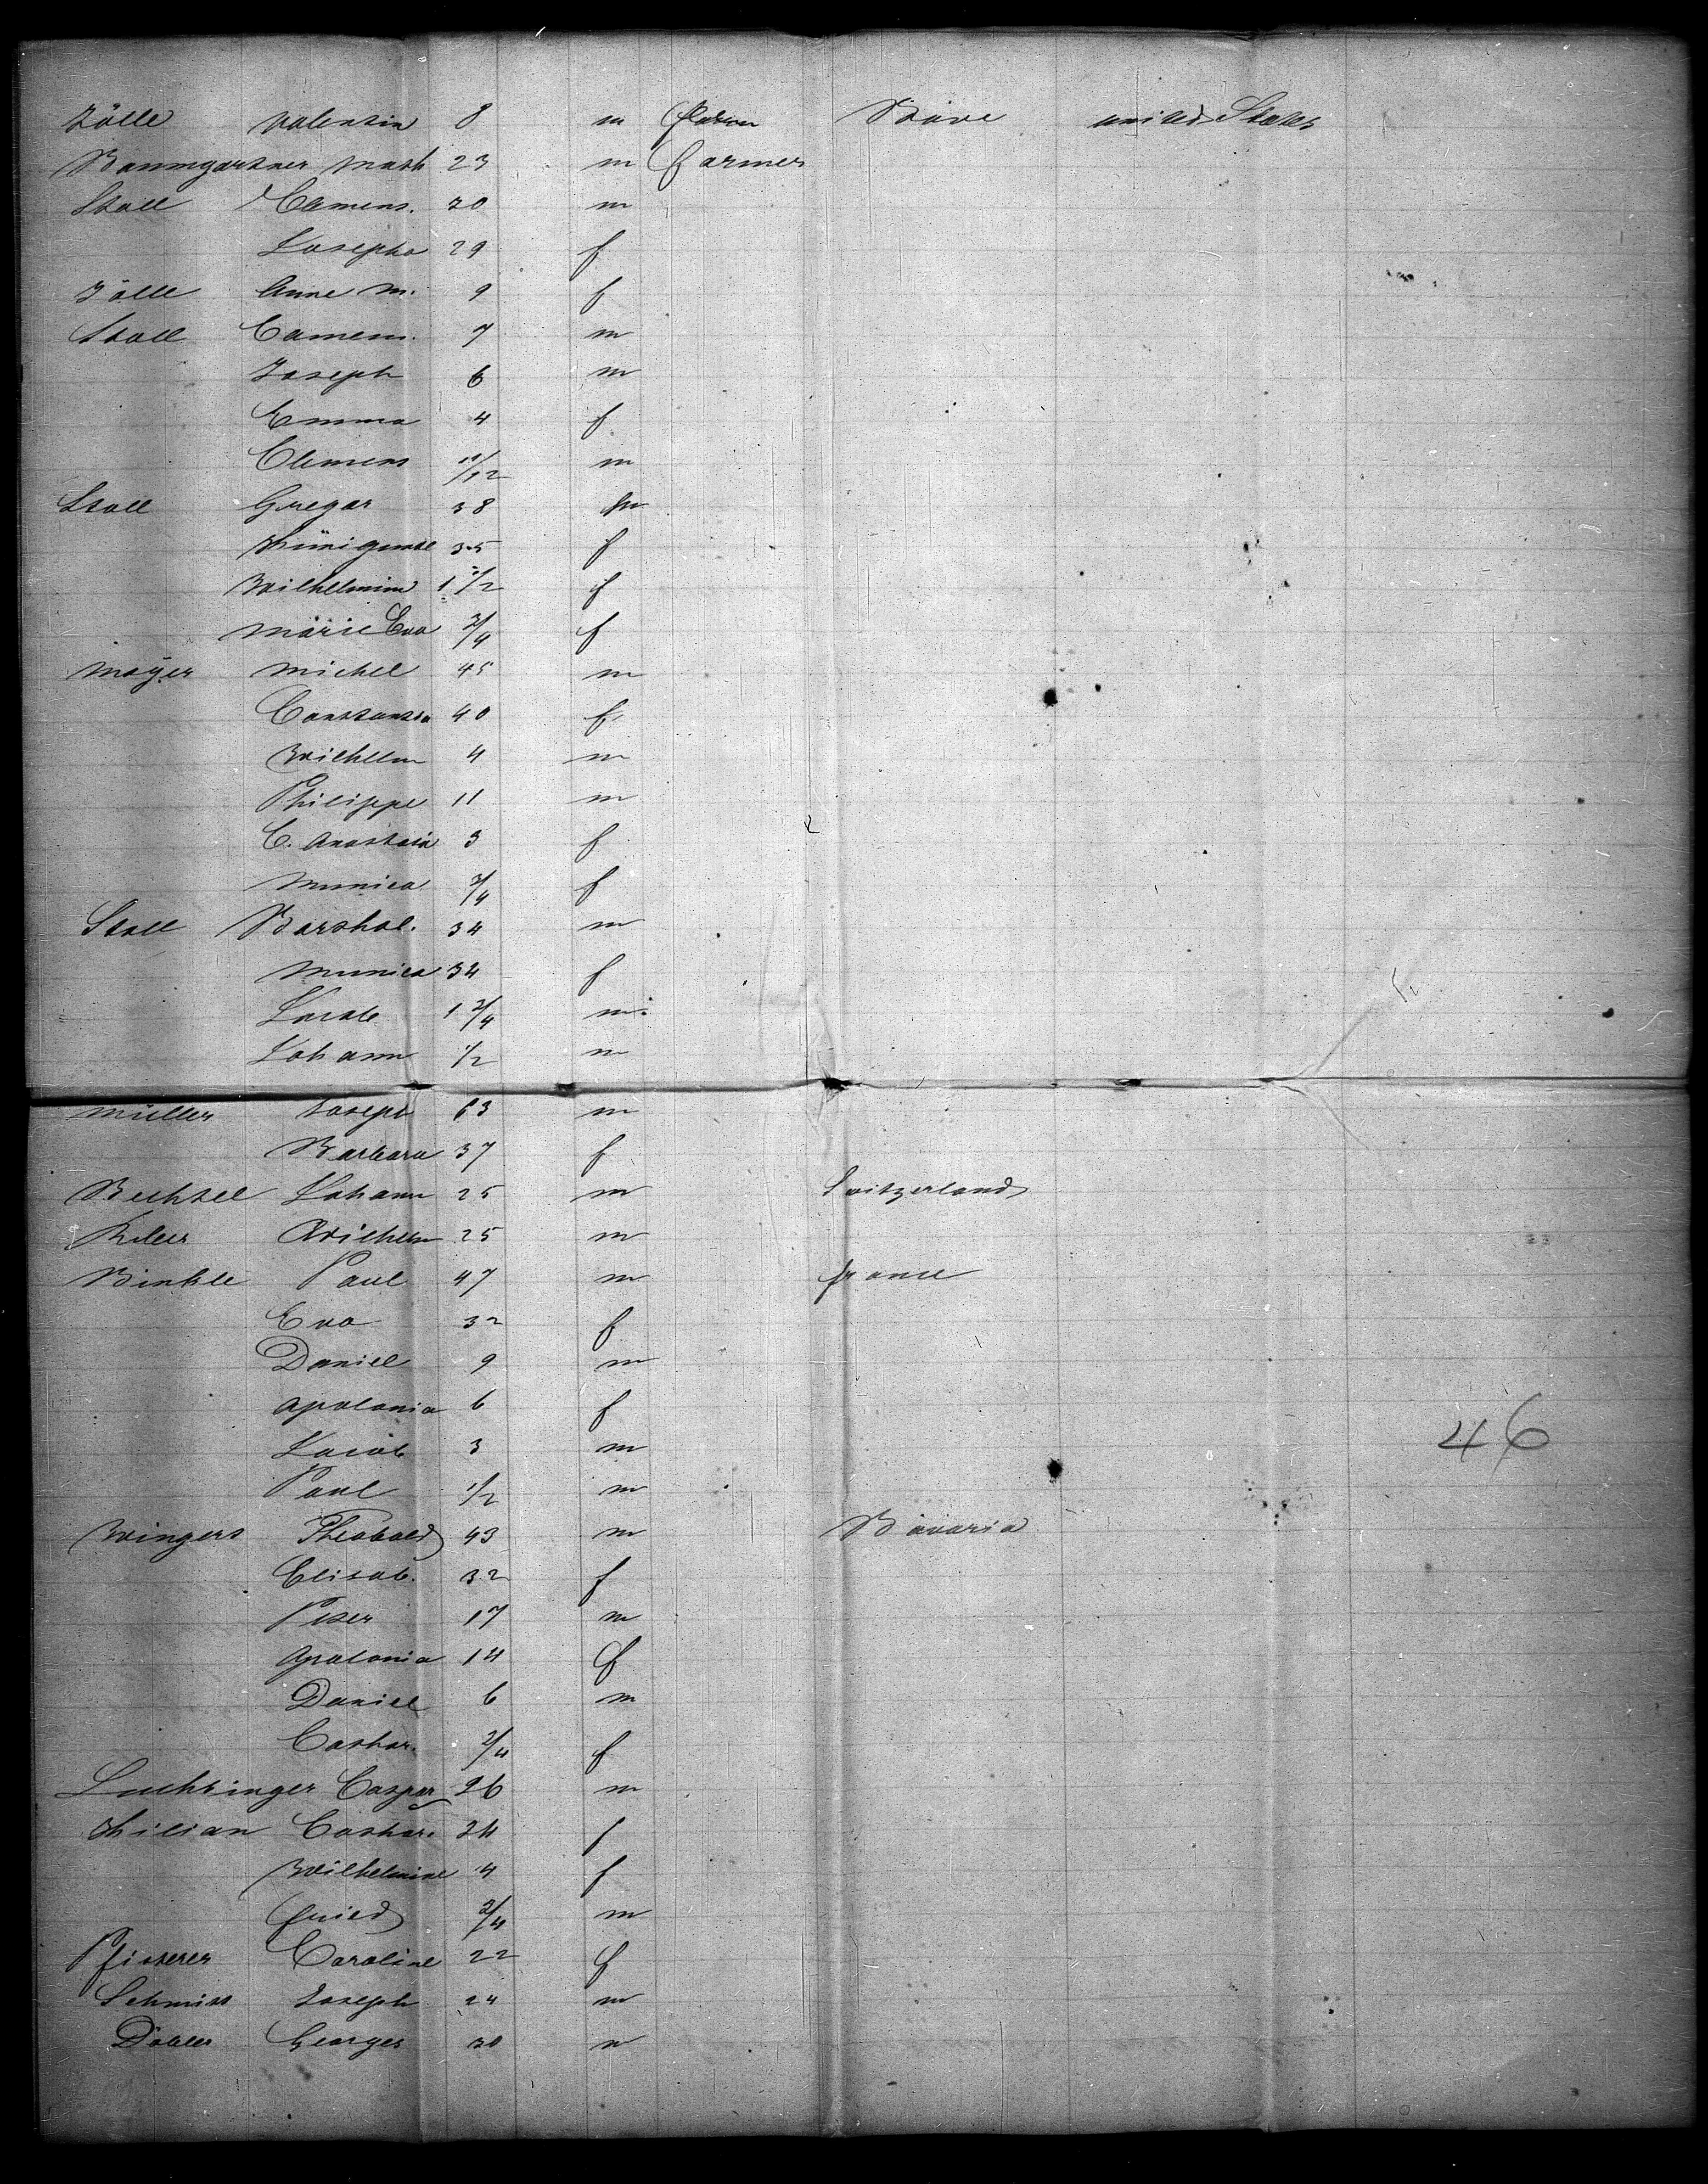 Zölle Valentin 8 m Bäve united States
Baumgartner Math 23 m farmer
Stoll Clemens. 30 m
Josepha 29 f
Zölle Anne M. 9 f
Stoll Camem. 7 m
Joseph 6 m
Emma 4 f
Clemens 11/12 m
Stoll Gregor 38 m
Künigunde 35 f
Wilhelmine 1 1/2 f
Marie Eva 3/4 f
Mayer Michel 45 m
Constantia 40 f
Wilhelm 4 m
Philippe 11 m
C. Anastasia 3 f
Munica 3/4 f
Stoll Barthol. 34 m
Munica 34 f
Jacob 1 3/4 m
Johann 1/2 m
Müller Joseph 63 m
Barbara 37 f
Bechtel Johann 25 m Switzerland
Wilhem 25 m
Binkle Paul 47 m france
Eva 32 f
Daniel 9 m
Apolonia 6 f
Jacob 3 m
Paul 1/2 m
Wingert Theobald 43 m Bavaria
Elisab. 32 f
Peter 17 m
Apolonia 14 f
Daniel 6 m
Cathar. 3/4 f
Luchsinger Caspar 26 m
Kilian Cathar. 34 f
Wilhelmine 4 f
fried 3/4 m
Pfisterer Caroline 22 f
Schmitt Joseph 24 m
Dobler Georges 30 m
46